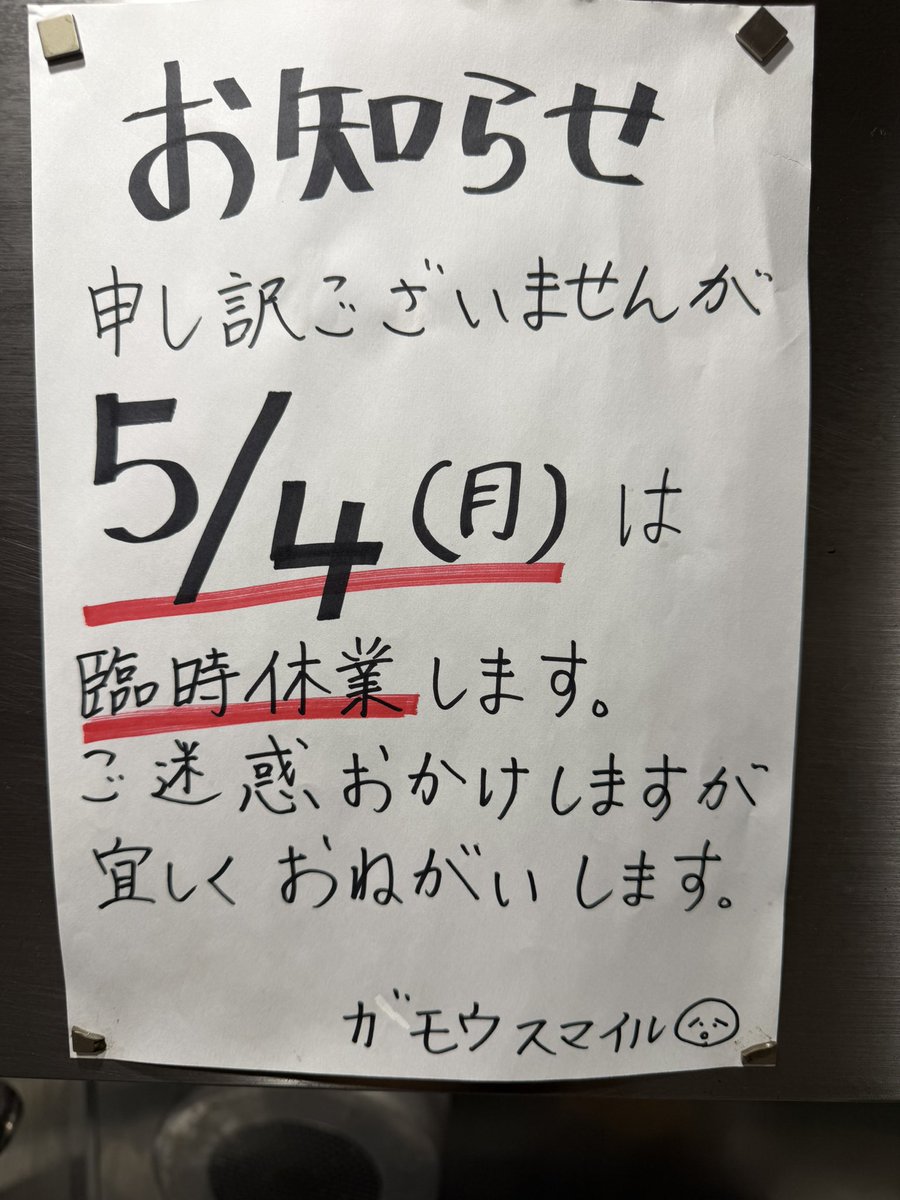 お知らせ
申し訳ございませんが
5/4(月)は
臨時休業します。
ご迷惑おかけしますが
宜しくおねがいします。
ガモウスマイル